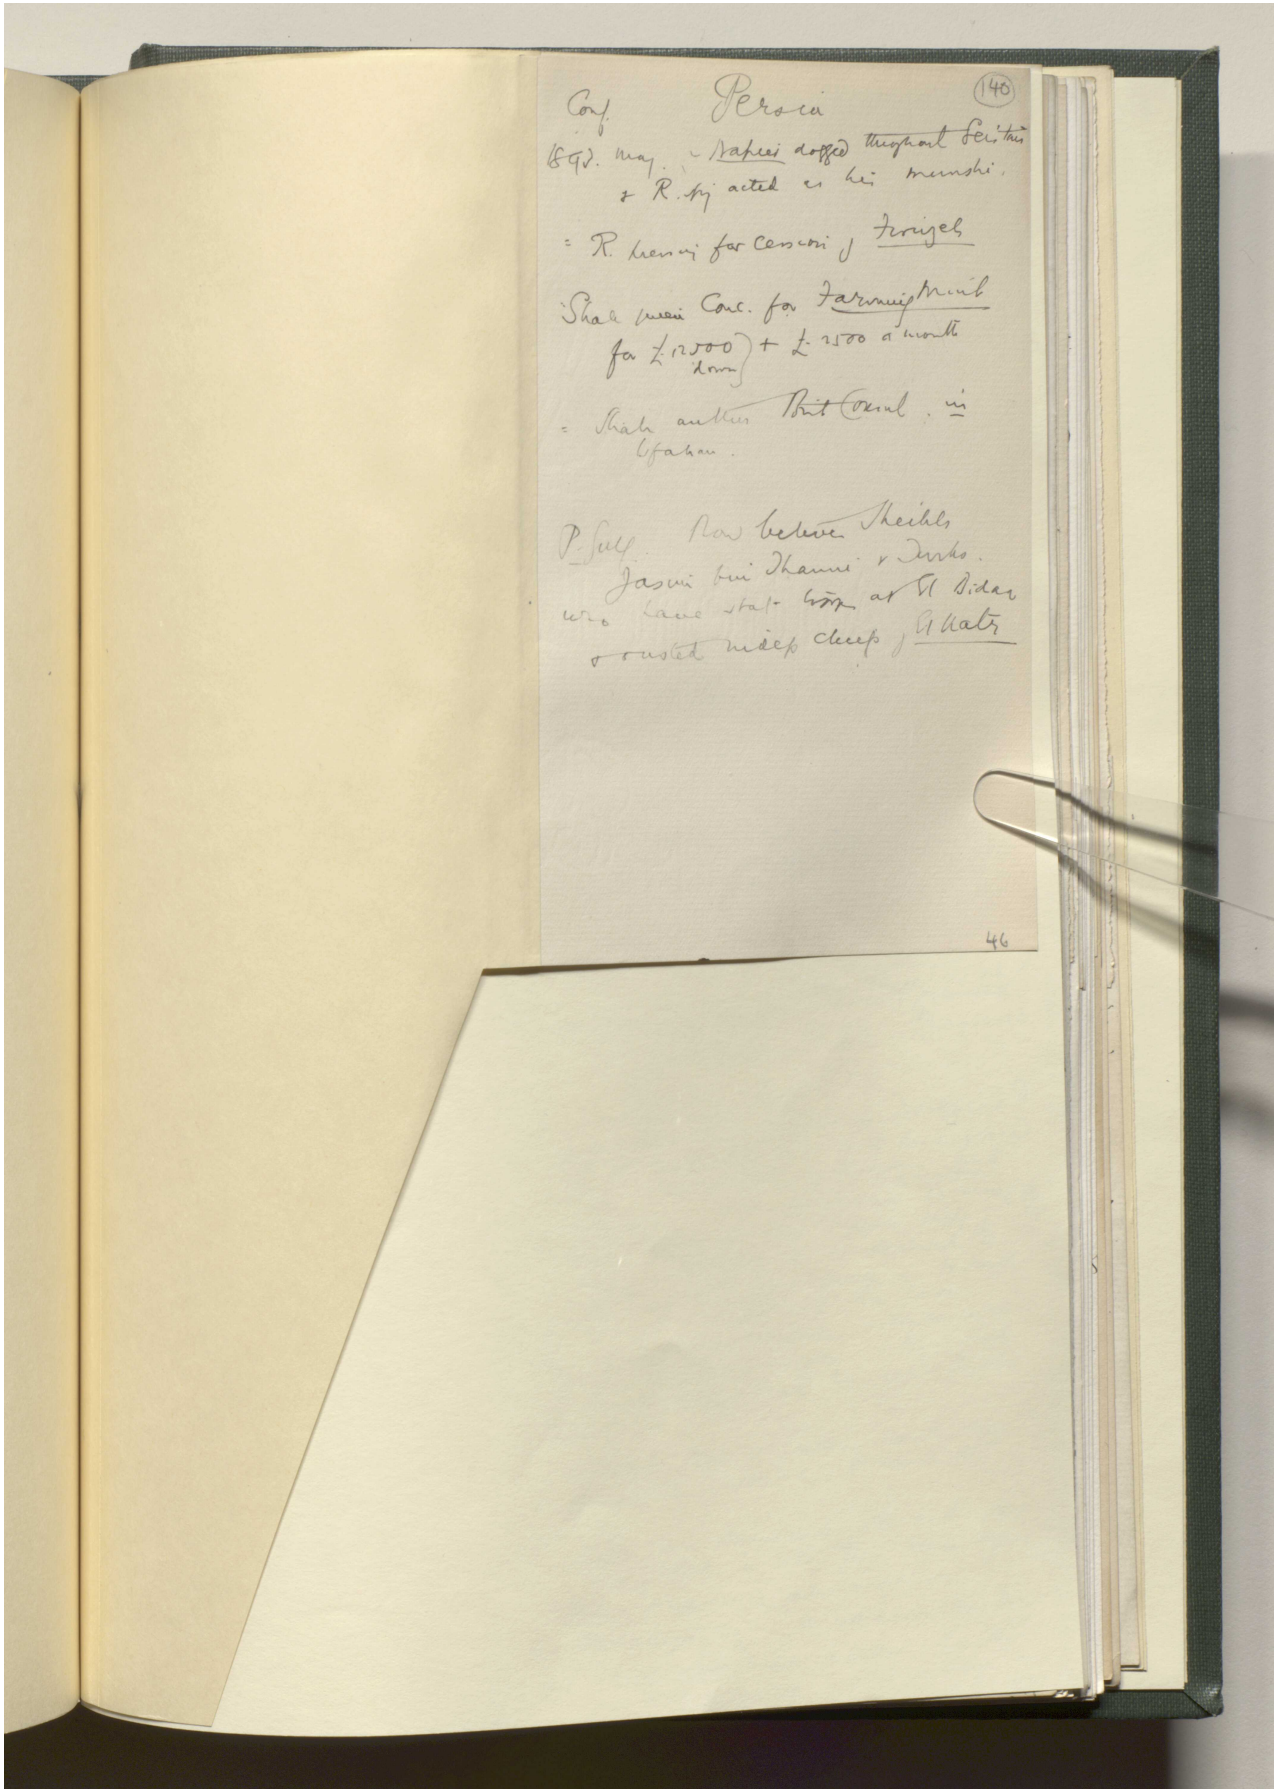 140
Conf. Persia
1893. May. - Napier dogged throughout Seistan
& R. spy acted as his munshi.
= R. pressing for cession of Firuzeh
Shah given Conc. for Farming Mint
for £12500 down) + £2500 a month
= Shah authses Brit Consul. in
Isfahan.
P. Gulf. Row between Sheikhs
Jasim bin Thanni & Turks.
who have stat. troops at El Bidaa
& ousted indep chiefs of El Katr
46